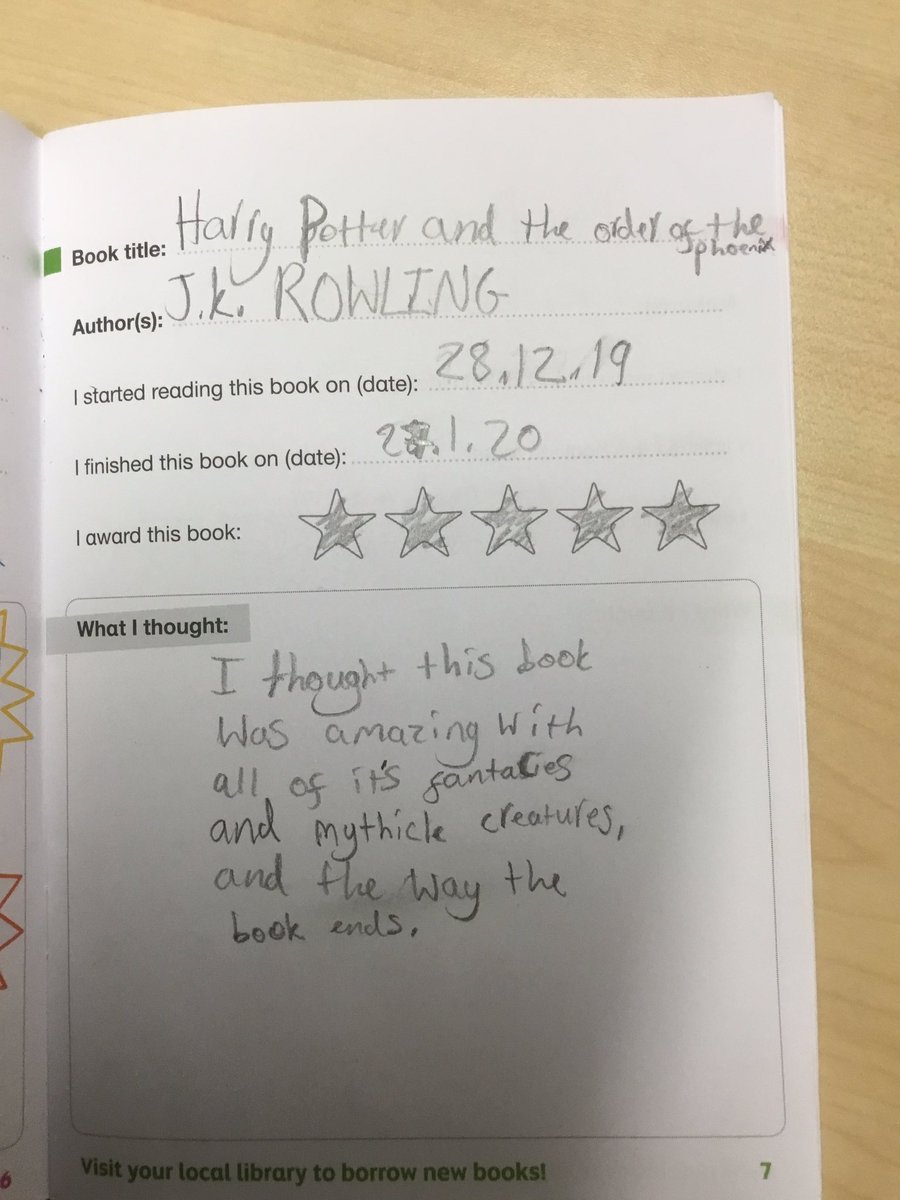 Book title: Harry Potter and the order of the
phoenix
Author(s): J.k. ROWLING
I started reading this book on (date): 28.12.19
I finished this book on (date): .1.20
I award this book:
What I thought:
I thought this book
was amazing with
all of it's fantacies
and mythicle creatures,
and the way the
book ends.
6
Visit your local library to borrow new books! 7